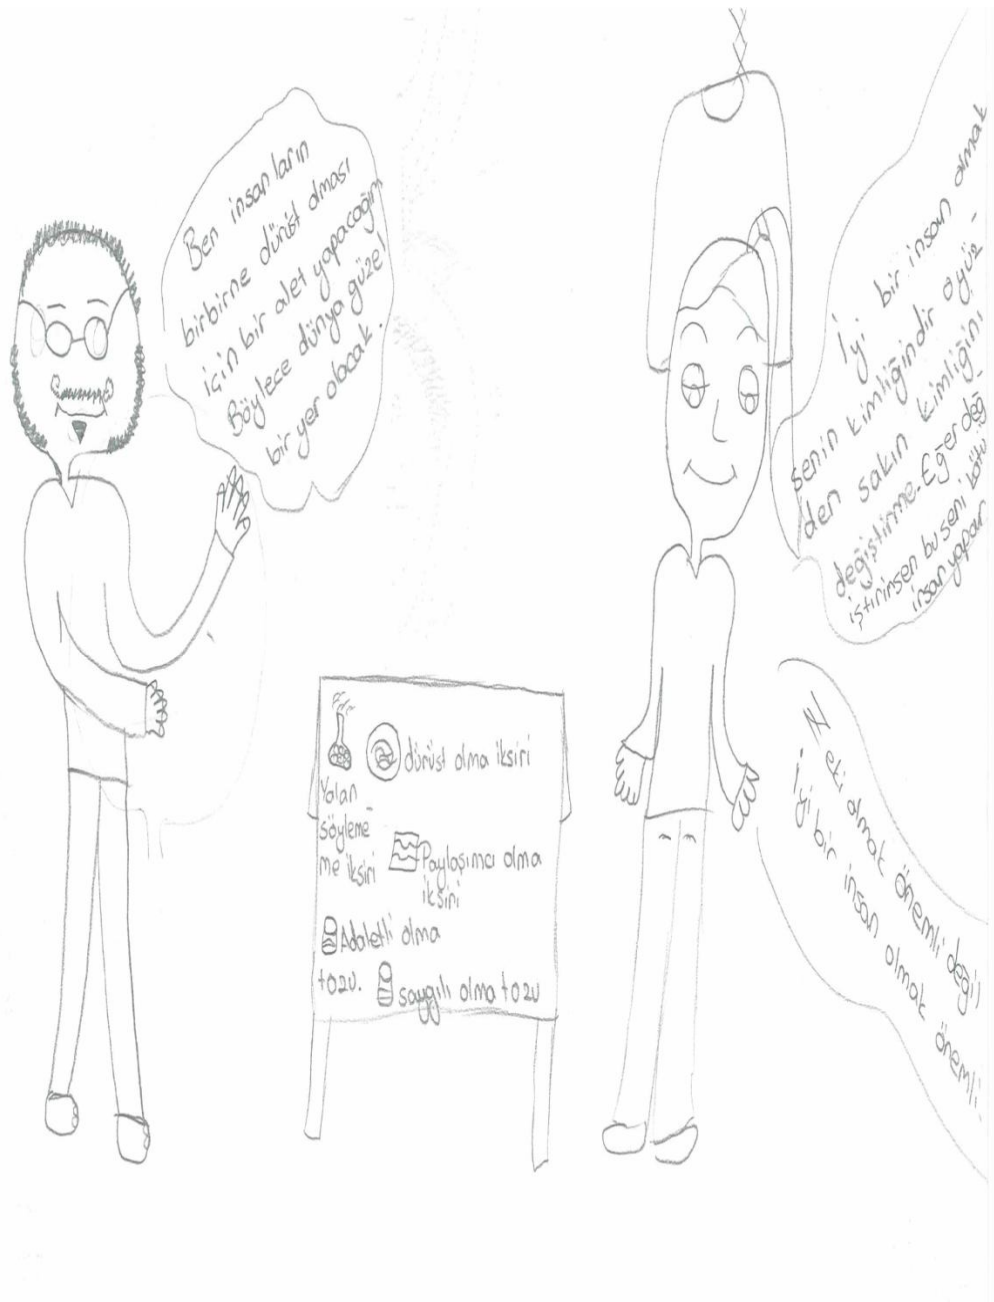 Ben insanların
birbirne dürüst olması
için bir alet yapacağım
Böylece dünya güzel
bir yer olacak.
İyi bir insan olmak
senin kimliğindir oyüz-
den sakın kimliğini
değiştirme. Eğer değ-
iştirirsen bu seni kötü
insan yapar
Zeki olmak önemli değil
iyi bir insan olmak önemli.
dürüst olma iksiri
Yalan
söyleme-
me iksiri
Paylaşımcı olma
iksiri
Adaletli olma
tozu.
saygılı olma tozu